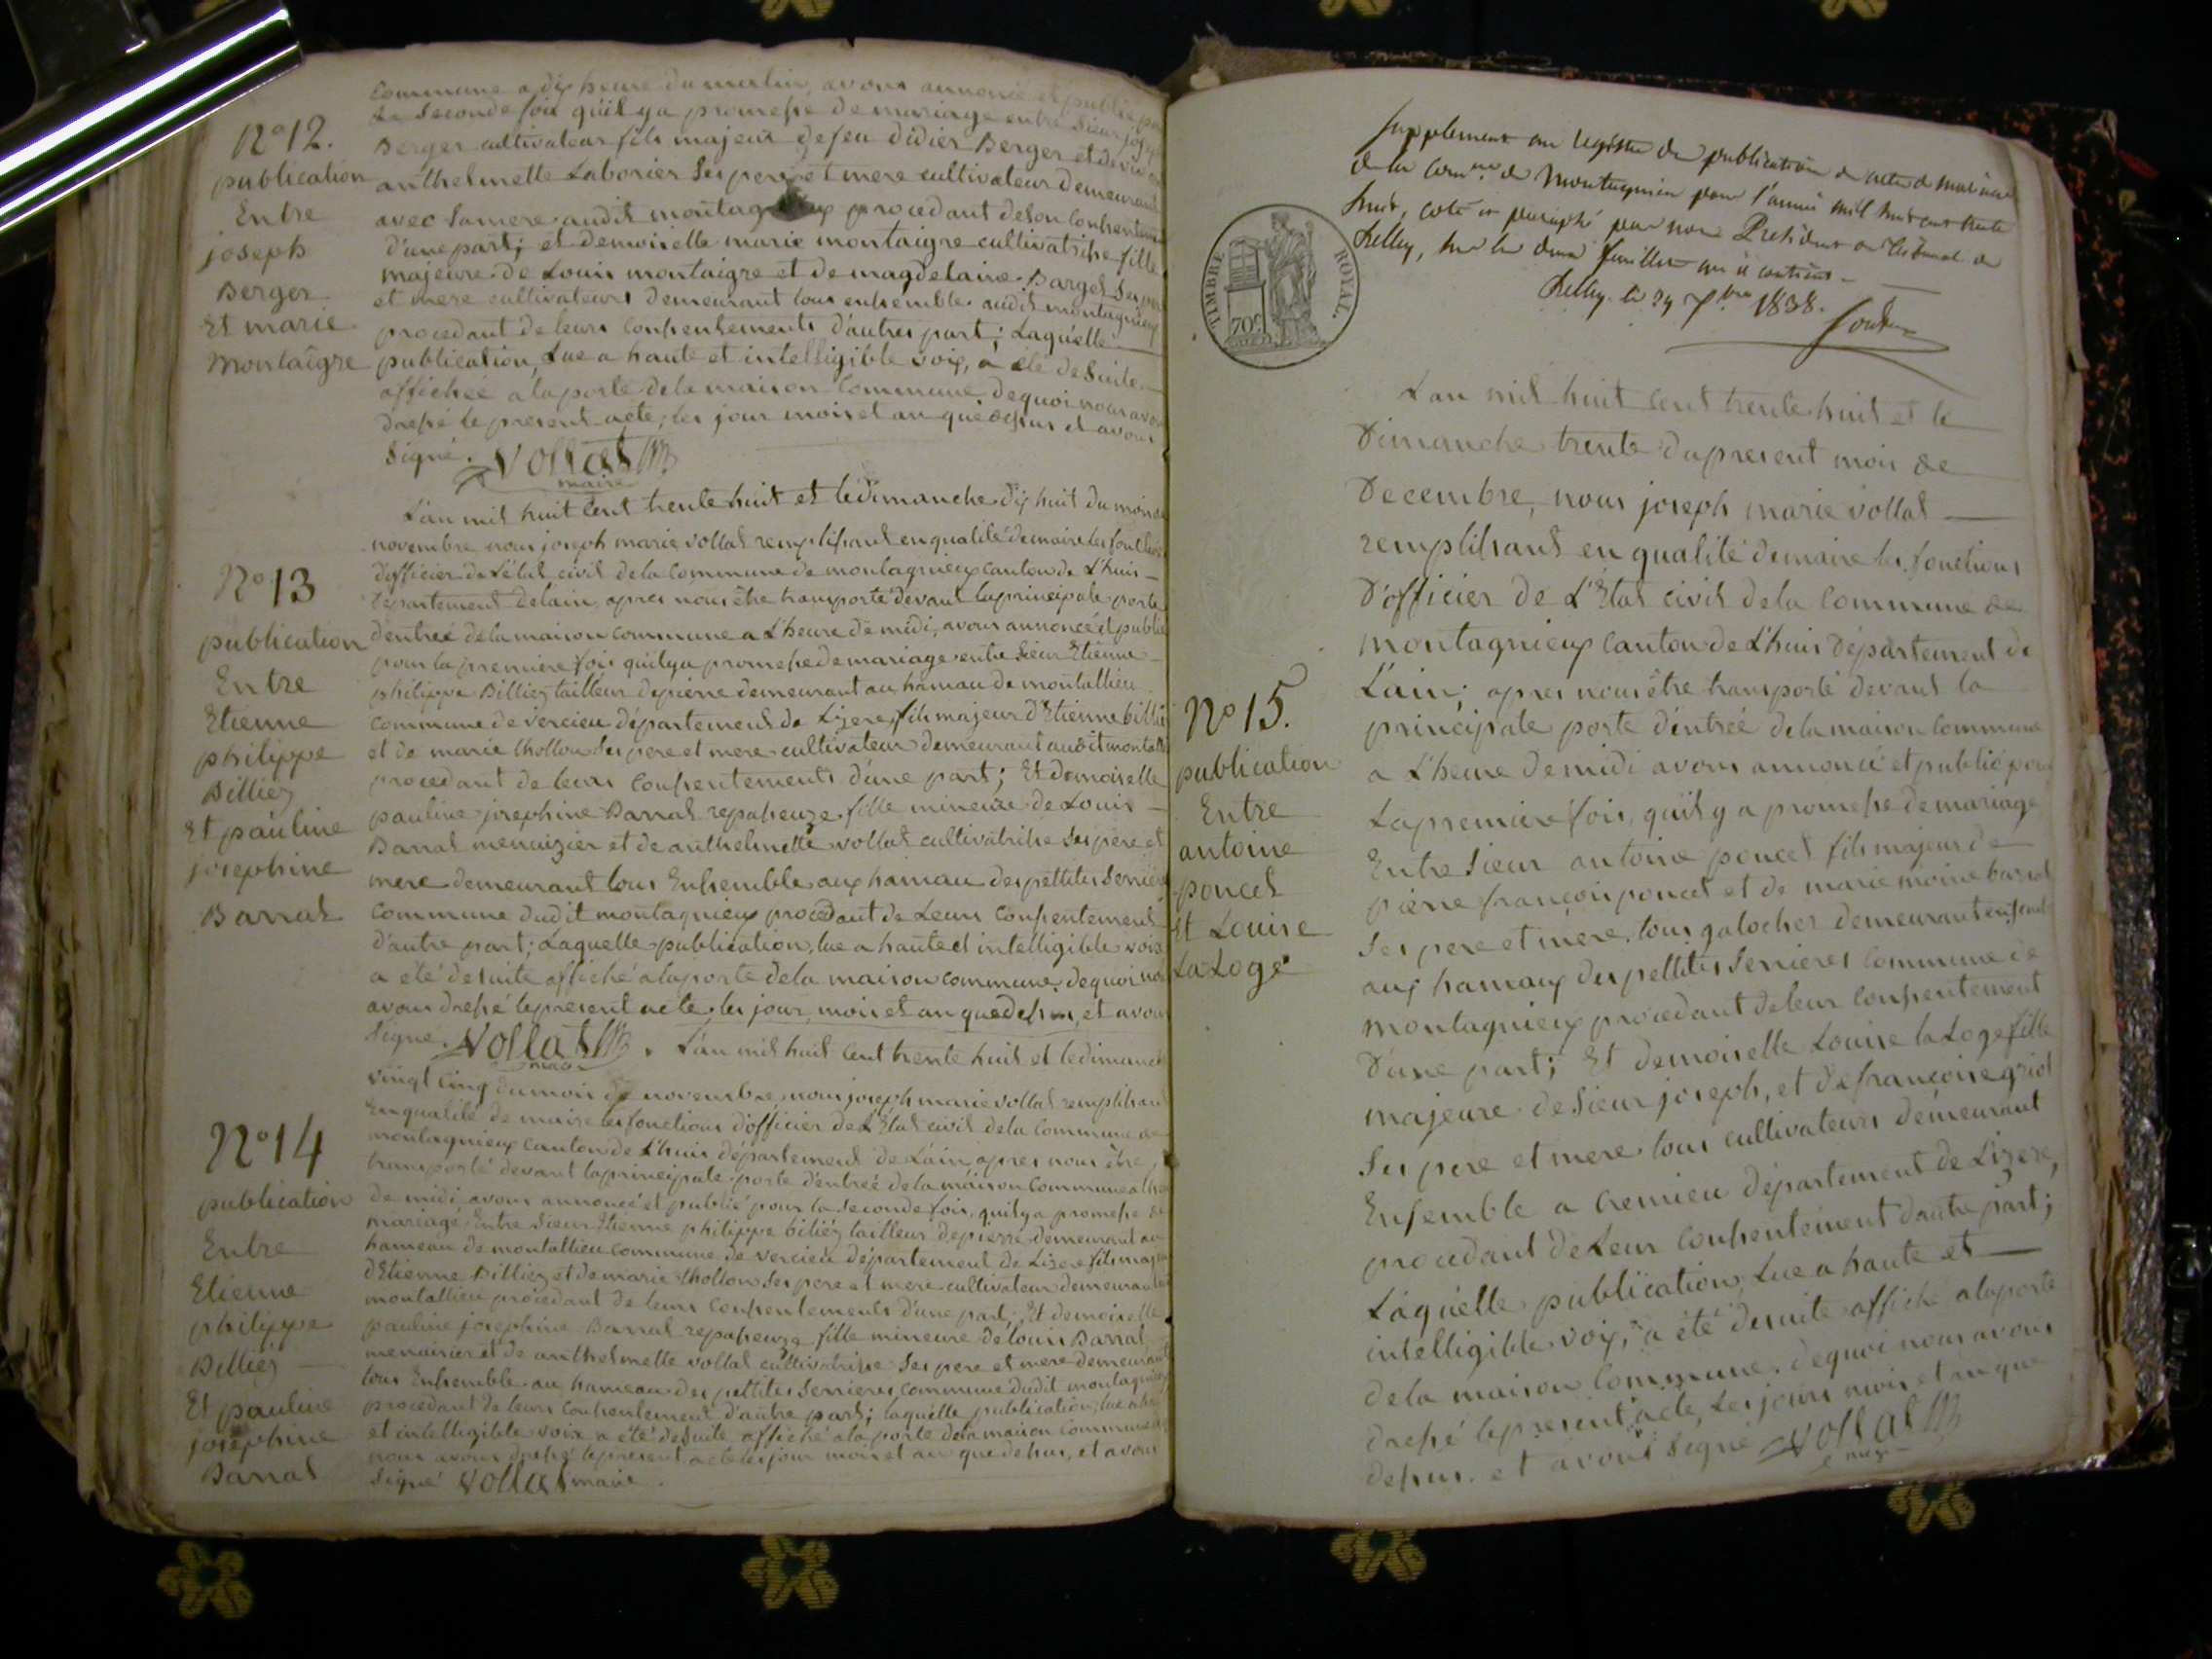 commune a dix heure du matin, avons annoncé et publié pour
la seconde fois qu'il y a promesse de mariage entre Sieur joseph
N° 12.
publication
Entre
joseph
Berger
Et marie
Montaigre
Berger cultivateur fils majeur de feu didier Berger et de vivante
anthelmette Laborier ses pere et mere cultivateur demeurant
avec sa mere audit montagnieux procedant de son consentement
d'une part; et demoiselle marie montaigre cultivatrise fille
majeure de Louis montaigre et de magdelaine Barget ses pere
et mere cultivateurs demeurant tous ensembles audit montagnieux
procedant de leurs consentements d'autres part; Laquelle
publication, Lue a haute et intelligible voix, a été de suite
affichee a la porte de la maison commune, de quoi nous avons
dressé le present acte; les jour mois et an que dessus et avons
signé. Vollat
maire
N° 13
publication
Entre
Etienne
philippe
Billiez
Et pauline
josephine
Barral
L'an mil huit cent trente huit et le dimanche dix huit du mois de
novembre nous joseph marie vollat remplissant en qualité de maire les fonctions
d'officier de L'état civil de la commune de montagnieux canton de L'huis
département de Lain, apres nous être transporté devant la principale porte
d'entreé de la maison commune a L'heure de midi, avons annoncé et publié
pour la premiere fois qu'il y a promesse de mariage entre Sieur Etienne
philippe Billiez tailleur de pierre demeurant au hamau de montallieu
commune de vercieu département de Lizere, fils majeur d'Etienne billiez
et de marie thollon ses pere et mere cultivateur demeurant audit montallieu
procedant de leurs consentements d'une part; Et demoiselle
pauline josephine Barral repasseuze fille mineure de Louis
Barral menuizier et de anthelmette vollat cultivatrise ses pere et
mere demeurant tous Ensemble aux hamau des pettites Serrieres
commune dudit montagnieux procedant de Leurs consentements
d'autre part; Laquelle publication, lue a haute et intelligible voix
a été de suite affiché a la porte de la maison commune, de quoi nous
avons dressé le present acte, les jour, mois et an que dessus, et avons
signé. Vollat
maire
N° 14
publication
Entre
Etienne
philippe
Billiez
Et pauline
josephine
Barral
L'an mil huit cent trente huit et le dimanche
vingt cinq du mois de novembre, nous joseph marie vollat remplissant
En qualité de maire les fonctions d'officier de L'Etat civil de la commune de
montagnieux canton de L'huis département de Lain, apres nous être
transporté devant la principale porte d'entreé de la maison commune a L'heure
de midi, avons annoncé et publié pour la seconde fois, qu'il y a promesse de
mariage Entre Sieur Etienne philippe biliéz tailleur de pierre demeurant au
hameau de montallieu commune de vercieu département de Lizere fils majeur
d'Etienne Billiez et de marie thollon ses pere et mere cultivateur demeurant a
montallieu procedant de leurs consentements d'une part; Et demoiselle
pauline josephine Barral repasseuze fille mineure de louis Barral
menuisier et de anthelmette vollat cultivatrise ses pere et mere demeurant
tous Ensemble au hameau des pettites Serrieres commune dudit montagnieux
procedant de leurs consentement d'autre part; laquelle publication, lue a haute
et intelligible voix a été de suite affiché a la porte de la maison commune
nous avons dressé le present acte les jour mois et an que dessus, et avons
signé Vollat maire.
Supplement au registre de publication de actes de mariage
de la comne de Montagnieu pour l'année mil huit cent trente
huit, coté et paraphé par nous President au tribunal de
Belley, sur les deux feuillets qu'il contient.
Belley le 29 Xbre 1838.
TIMBRE ROYAL.
70c
L'an mil huit cent trente huit et le
Dimanche trente du present mois de
Decembre, nous joseph marie vollat
remplissant en qualité de maire les fonctions
D'officier de L'Etat civil de la commune de
montagnieux canton de L'huis Département de
L'ain; apres nous être transporté devant la
principale porte d'éntreé de la maison commune
a L'heure de midi avons annoncé et publié pour
La premiere fois, qu'il y a promesse de mariage
N° 15.
publication
Entre
antoine
poncet
Et Louise
LaLoge
Entre Sieur antoine poncet fils majeur de
pierre françois poncet et de marie moine barral
Ses pere et mere, tous galocher demeurant ensemble
aux hamaux des pettites Serrieres commune de
montagnieux procedant de leur consentement
D'une part; Et demoiselle Louise laLoge fille
majeure de Sieur joseph, et de françoise griot
Ses pere et mere tous cultivateurs démeurant
Ensemble a cremieu département de Lizere,
procedant de Leur consentement d'autre part;
Laquelle publication, Lue a haute et
intelligible voix, a été de suite affiché a la porte
de la maison commune. de quoi nous avons
dressé le present acte, Les jours mois et an que
dessus. et avons signé Vollat
maire